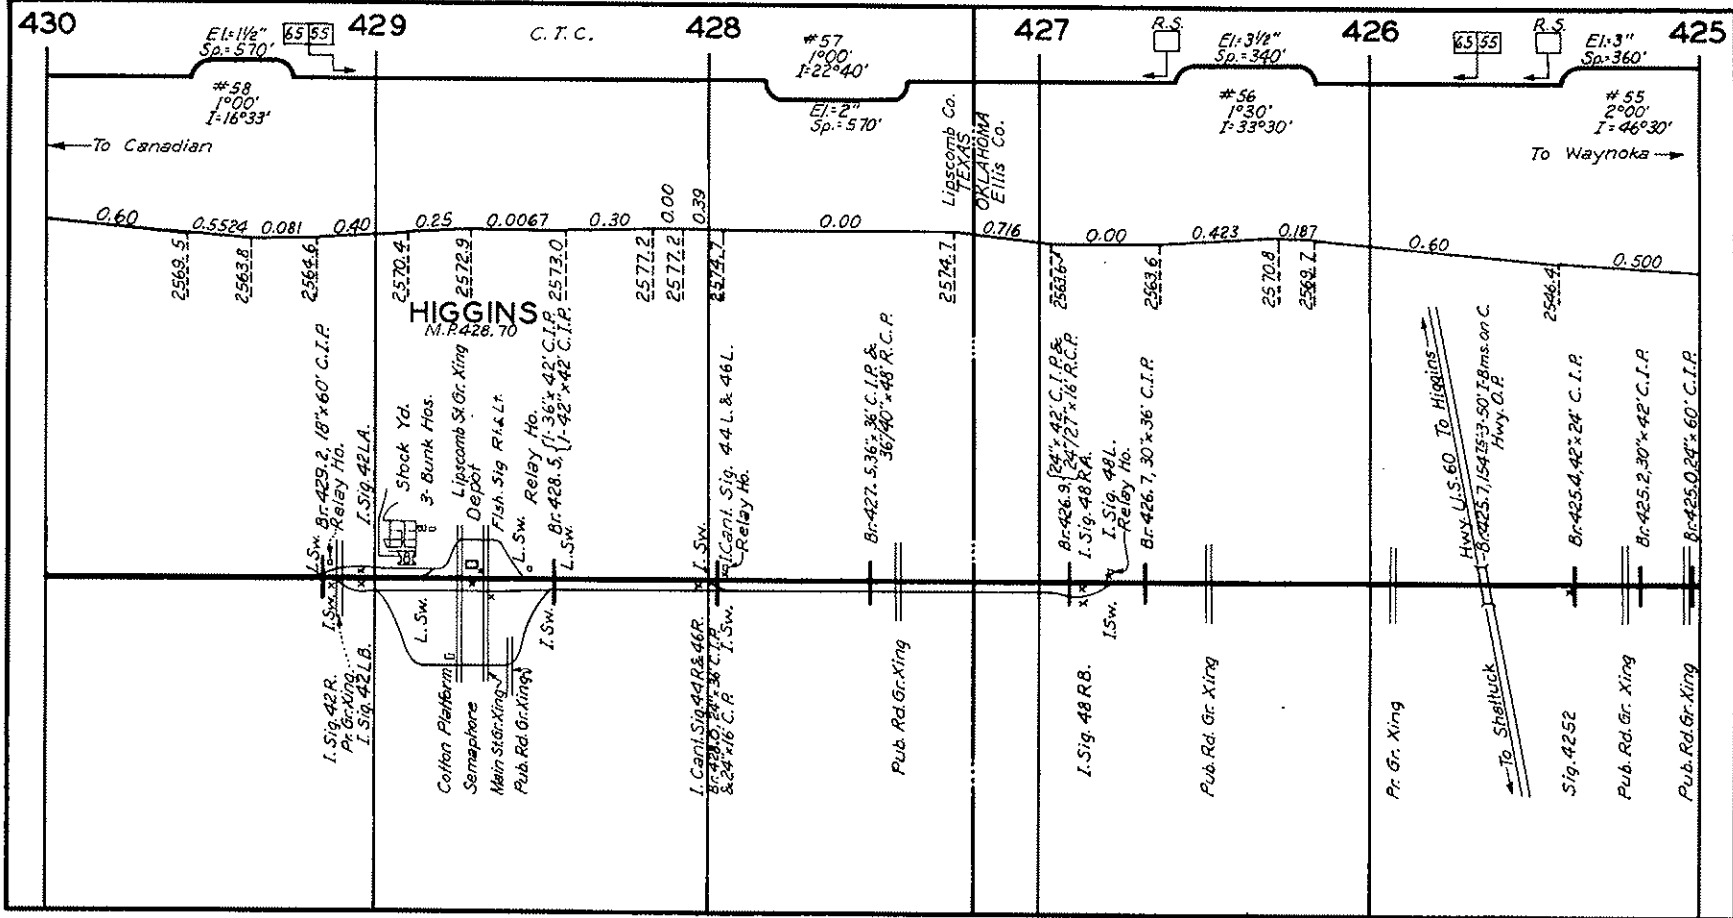 430
429
C. T. C.
428
427
426
425
El.=1½"
Sp.=570'
65 55
#57
1°00'
I=22°40'
R.S.
El.=3½"
Sp.=340'
65 55
R.S.
El.=3"
Sp.=360'
#58
1°00'
I=16°33'
El.=2"
Sp.=570'
#56
1°30'
I=33°30'
#55
2°00'
I=46°30'
To Canadian
Lipscomb Co.
TEXAS
OKLAHOMA
Ellis Co.
To Waynoka
0.60
0.5524
0.081
0.40
0.25
0.0067
0.30
0.00
0.39
0.00
0.716
0.00
0.423
0.187
0.60
0.500
2569.5
2563.8
2564.6
2570.4
2572.9
2573.0
2577.2
2577.2
2574.7
2574.7
2563.6
2563.6
2570.8
2569.7
2546.4
HIGGINS
M.P. 428.70
L.Sw.
Br. 429.2, 18"x60' C.I.P.
Relay Ho.
I. Sig. 42LA.
Stock Yd.
3-Bunk Hos.
Lipscomb St. Gr. Xing
Depot
Flsh. Sig Rt. & Lt.
L. Sw.
Relay Ho.
Br. 428.5, {1-36"x42' C.I.P.
{1-42"x42' C.I.P.
L.Sw.
I. Sw.
I. Cant. Sig. 44L. & 46L.
Relay Ho.
Br. 427.5, 36"x36' C.I.P. &
36/40"x48' R.C.P.
Br. 426.9 {24"x42' C.I.P. &
24"/27"x16' R.C.P.
I. Sig. 48RA.
I. Sig. 48L.
Relay Ho.
Br. 426.7, 30"x36' C.I.P.
Hwy. U.S. 60 To Higgins
Hwy. O.P.
Br. 425.4, 42"x24' C.I.P.
Br. 425.2, 30"x42' C.I.P.
Br. 425.0, 24"x60' C.I.P.
I.Sw.
L.Sw.
I.Sw.
I.Sw.
I.Sw.
I. Sig. 42R.
Pr. Gr. Xing
I. Sig. 42LB.
Cotton Platform
Semaphore
Main St. Gr. Xing
Pub. Rd. Gr. Xing
I. Cant. Sig. 44R & 46R.
Br. 428.0, 24"x36' C.I.P.
& 24"x16' C.P.
Pub. Rd. Gr. Xing
I. Sig. 48RB.
Pub. Rd. Gr. Xing
Pr. Gr. Xing
To Shattuck
Sig. 4252
Pub. Rd. Gr. Xing
Pub. Rd. Gr. Xing